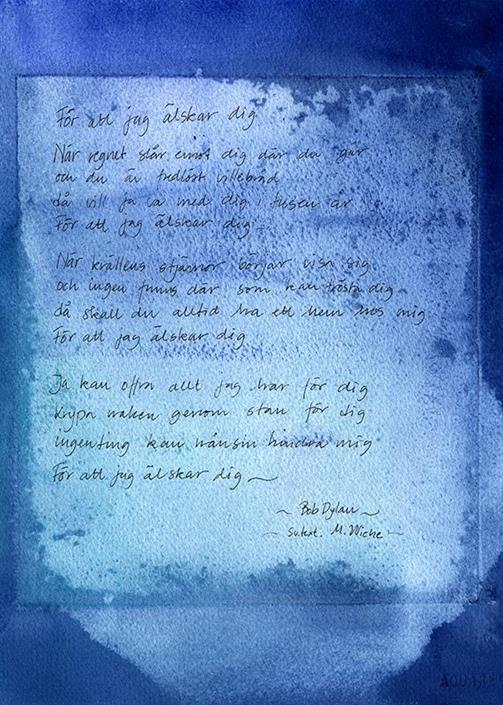 För att jag älskar dig
När regnet slår emot dig där du går
och du är fredlöst villebråd
då vill ja ta med dig i tusen år
För att jag älskar dig
När kvällens stjärnor börjar visa sig
och ingen finns där som kan trösta dig
då skall du alltid ha ett hem hos mig
För att jag älskar dig
Ja kan offra allt jag har för dig
krypa naken genom stan för dig
ingenting kan nånsin hindra mig
För att jag älskar dig
~ Bob Dylan ~
~ Sv. text. M. Wiehe ~